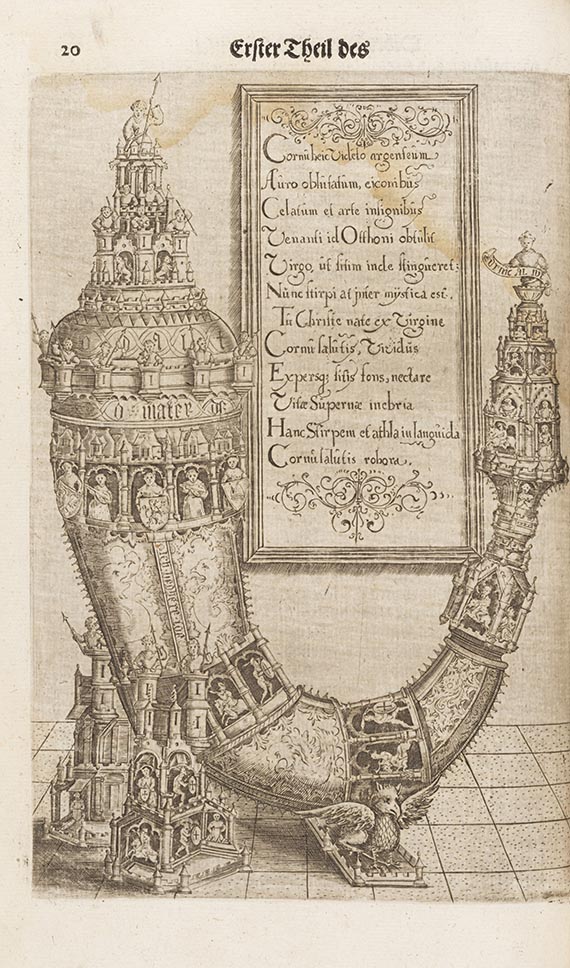 20 Erster Theil des
Cornu heic Videto argenteum
Auro oblusatum, eiconibus
Celatum et arte insignibus
Venanti id Otthoni obtulit
Virgo, ut sitim inde stingueret:
Nunc stirpi at inter mystica est.
Tu Christe nate ex Virgine
Cornu salutis, Vividus
Expersq; litis fons, nectare
Vitæ Supernæ inebria
Hanc Stirpem et athla in languida
Cornu salutis robora.
o mater de